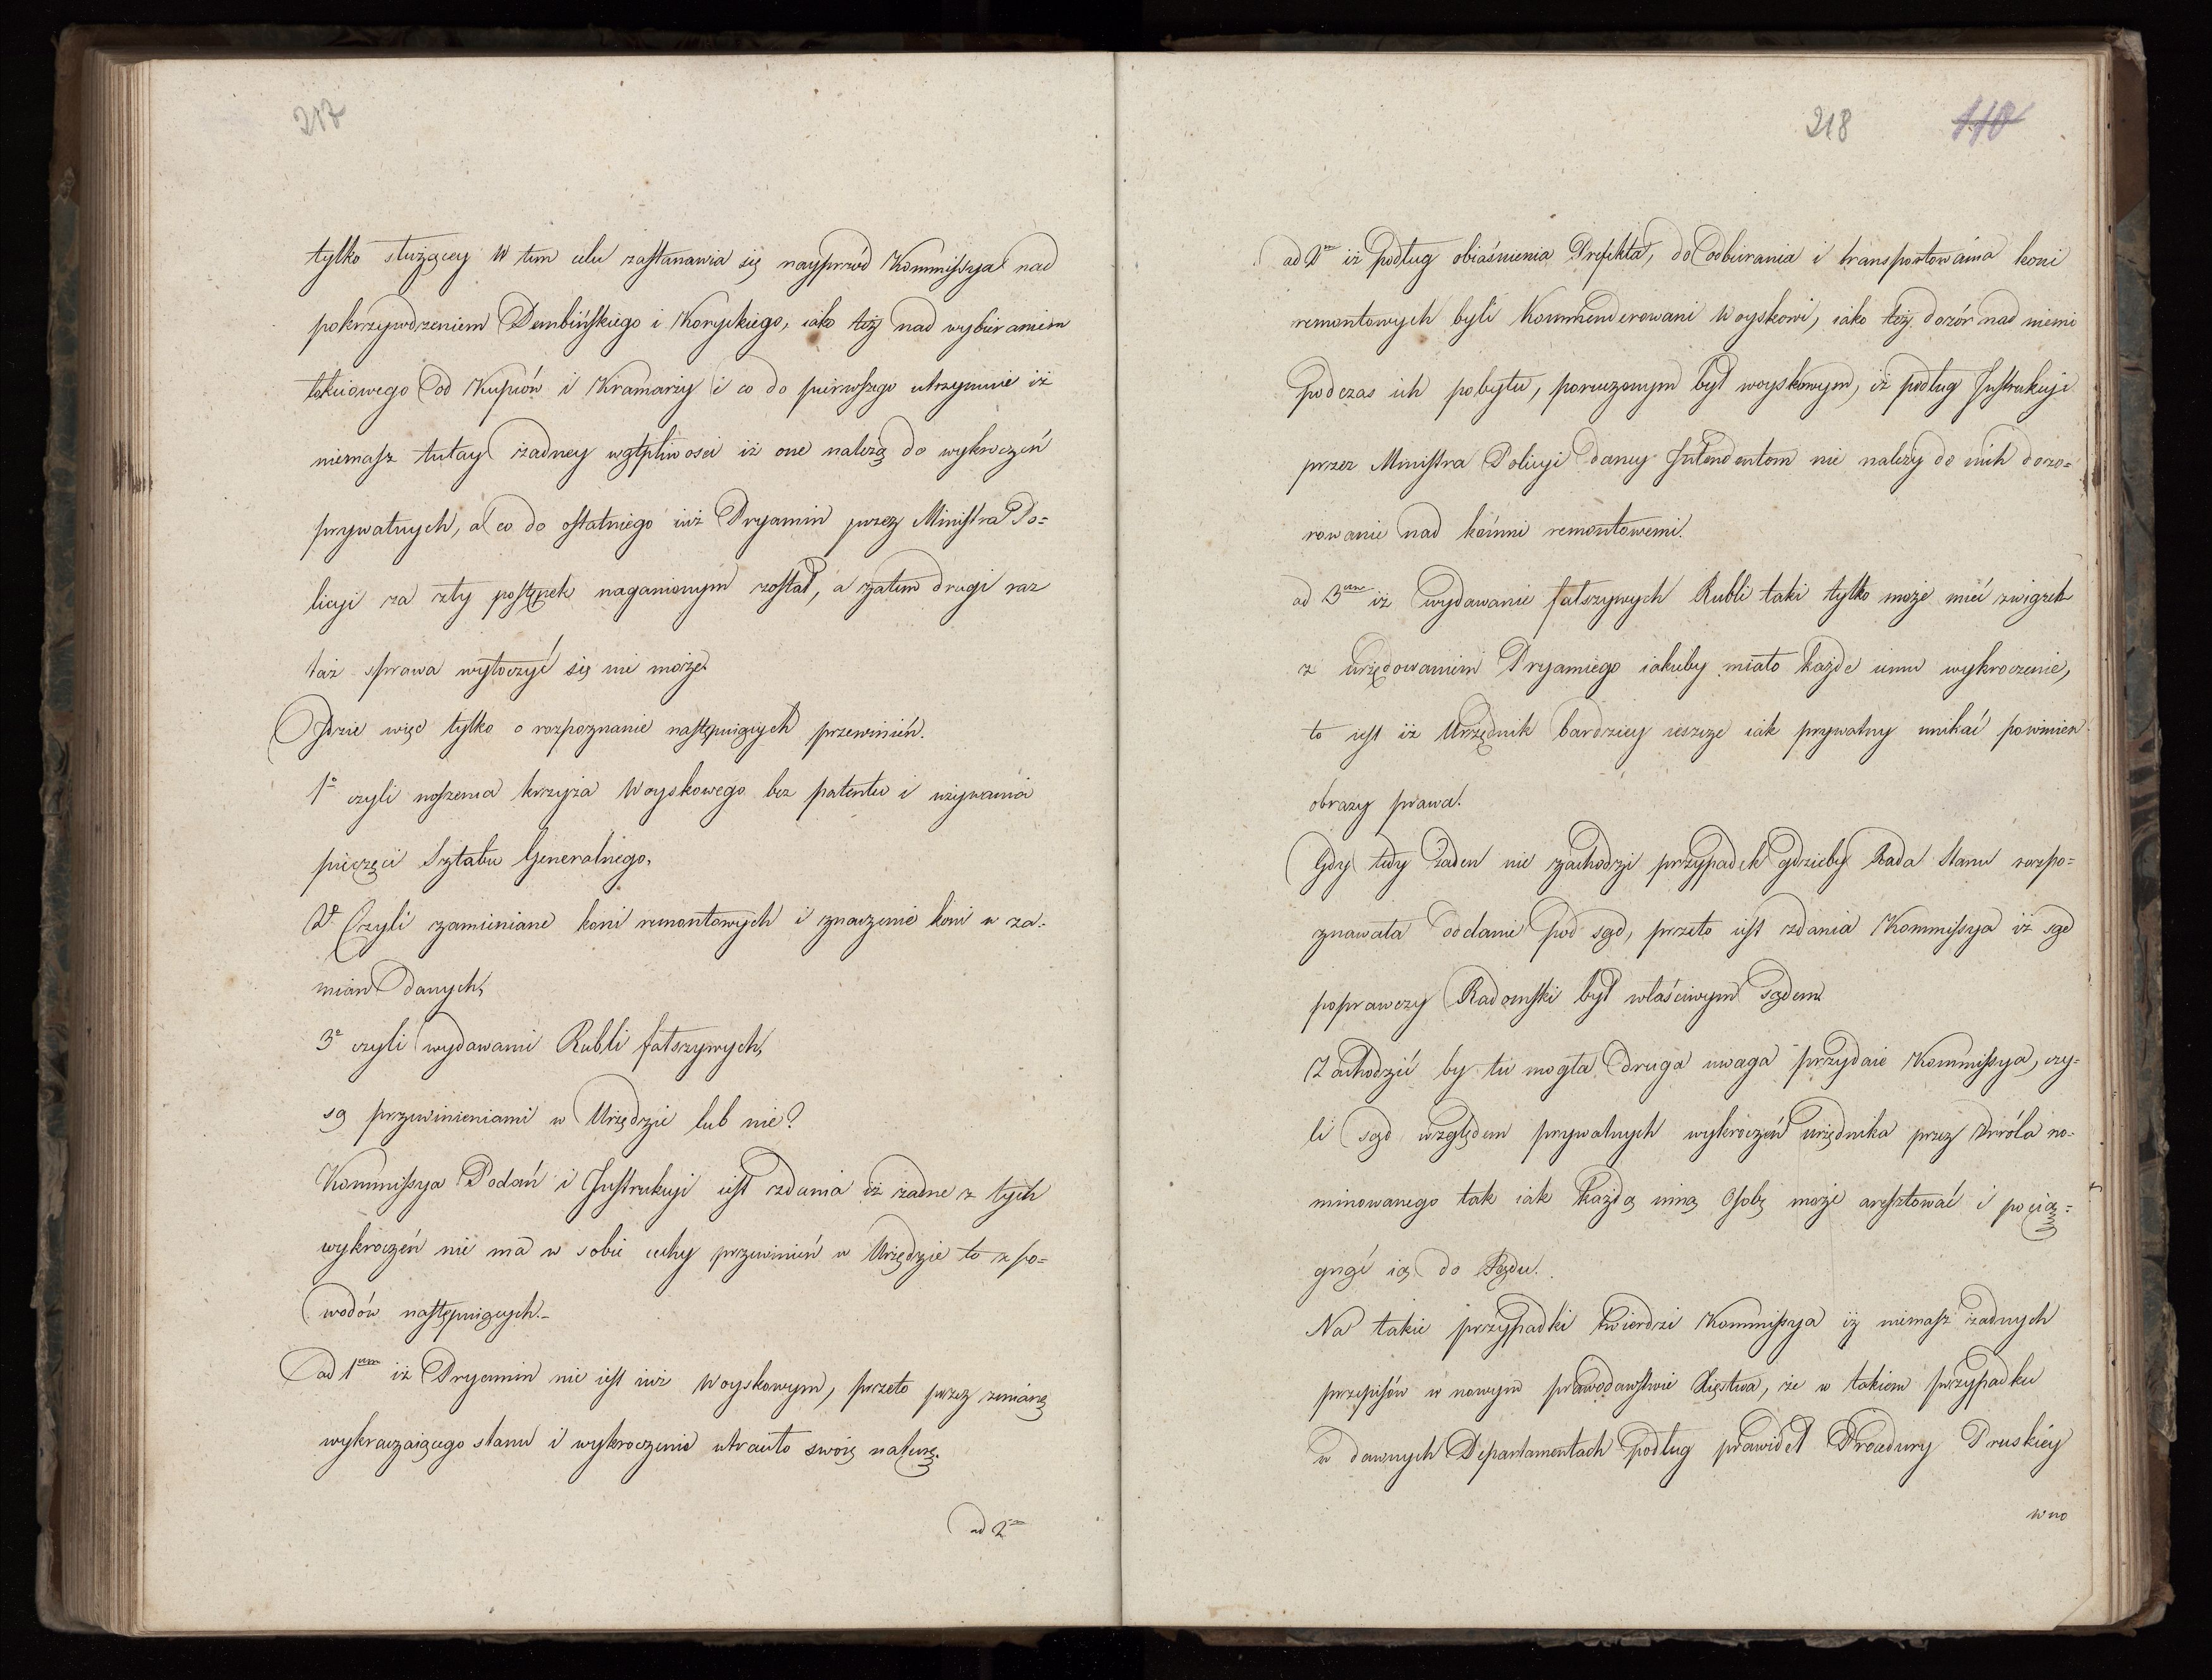 217
tylko służącey W tym celu zastanawia się nayprzód Kommissya nad
pokrzywdzeniem Dembińskiego i Koryckiego, iako też nad wybieraniem
łokciowego od Kupców i Kramarzy i co do pierwszego utrzymuie iż
niemasz tutay żadney wątpliwości iż one należą do wykroczeń
prywatnych, a co do ostatniego iuż Pryamin przez Ministra Po=
licyi za zły postępek naganionym został, a zatem drugi raz
taż sprawa wytoczyć się nie może.
Idzie więc tylko o rozpoznanie następuiących przewinień.
1º czyli noszenia krzyża Woyskowego bez patentu i używania
pieczęci Sztabu Generalnego,
2º Czyli zamieniane koni remontowych i znaczenie koni w za=
mian danych,
3º czyli wydawanie Rubli fałszywych,
są przewinieniami w Urzędzie lub nie?
Kommissya Podań i Instrukcyi iest zdania iż żadne z tych
wykroczeń nie ma w sobie cechy przewinień w Urzędzie to z po=
wodów następuiących.-
ad 1um iż Pryamin nie iest iuż Woyskowym, przeto przez zmianę
wykraczaiącego stanu i wykroczenie utraciło swoię naturę.
ad 2um
218 110
ad 2um iż podług obiaśnienia Prefekta, do odbierania i transportowania koni
remontowych byli Kommenderowani Woyskowi, iako też dozór nad niemi
podczas ich pobytu, poruczonym był woyskowym, iż podług Instrukcyi
przez Ministra Policyi daney Intendentom nie należy do nich dozo=
rowanie nad końmi remontowemi.
ad 3um iż wydawanie fałszywych Rubli taki tylko może mieć związek
z urzędowaniem Pryamiego iakieby miało każde inne wykroczenie,
to iest iż Urzędnik bardziey ieszcze iak prywatny unikać powinien
obrazy prawa.
Gdy tedy żaden nie zachodzi przypadek gdzieby Rada Stanu rozpo=
znawała oddanie pod sąd, przeto iest zdania Kommissya iż sąd
poprawczy Radomski był właściwym sądem
Zachodzić by tu mogła druga uwaga przydaie Kommissya, czy=
li sąd względem prywatnych wykroczeń urzędnika przez Króla no=
minowanego tak iak każdą inną Osobę może aresztować i pocią=
gnąć ią do Sądu.
Na takie przypadki twierdzi Kommissya iż niemasz żadnych
przepisów w nowym prawodawstwie Xięstwa, że w takiem przypadku
w dawnych Departamentach podług prawideł Procedury Pruskiey
w no